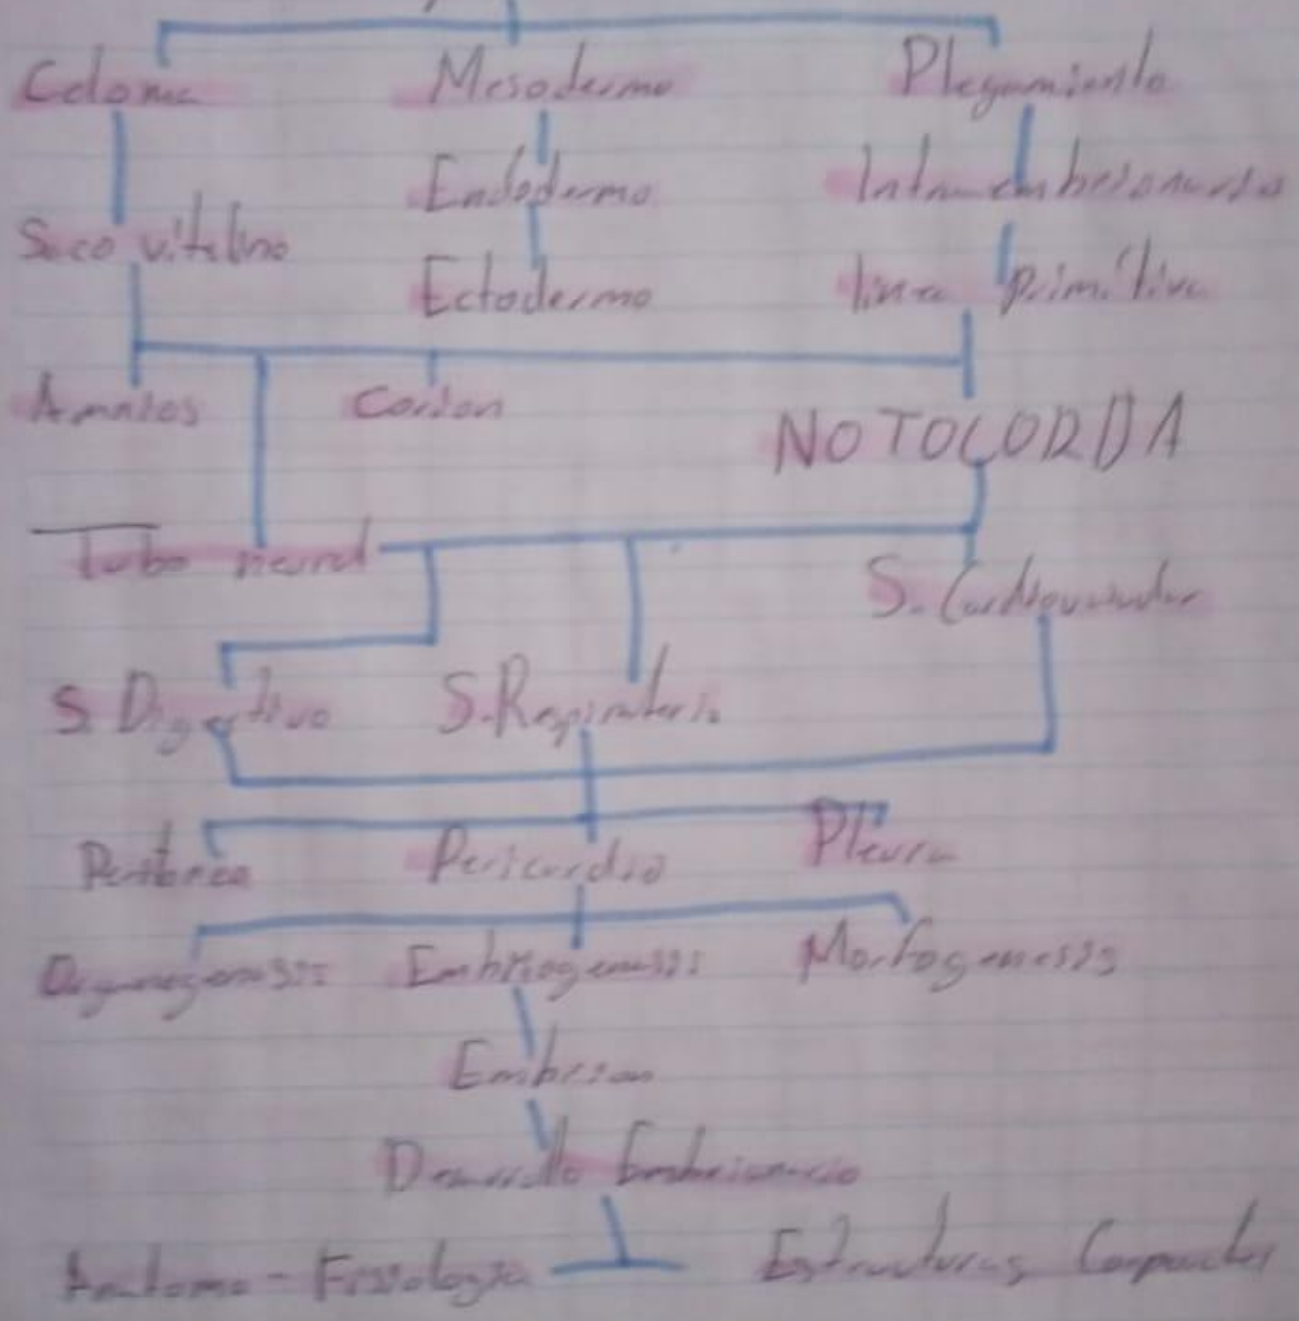 Celoma Mesodermo Plegamiento
Endodermo Intraembrionario
Saco vitelino
Ectodermo linea primitiva
Amnios Cordon
NOTOCORDA
Tubo neural
S. Cardiovascular
S. Digestivo S. Respiratorio
Peritoneo Pericardio Pleura
Organogenesis Embriogenesis Morfogenesis
Embrion
Desarrollo Embrionario
Anatomo - Fisiologia Estructuras Corporales